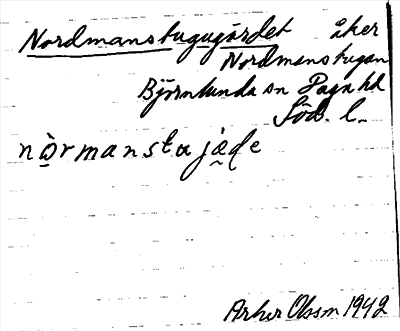 Nordmanstugugärdet åker
Nordmanstugan
Björnlunda sn Daga hd
Söd. l.
nòrmanstajæ̣ḍe
Arher Olssm 1942